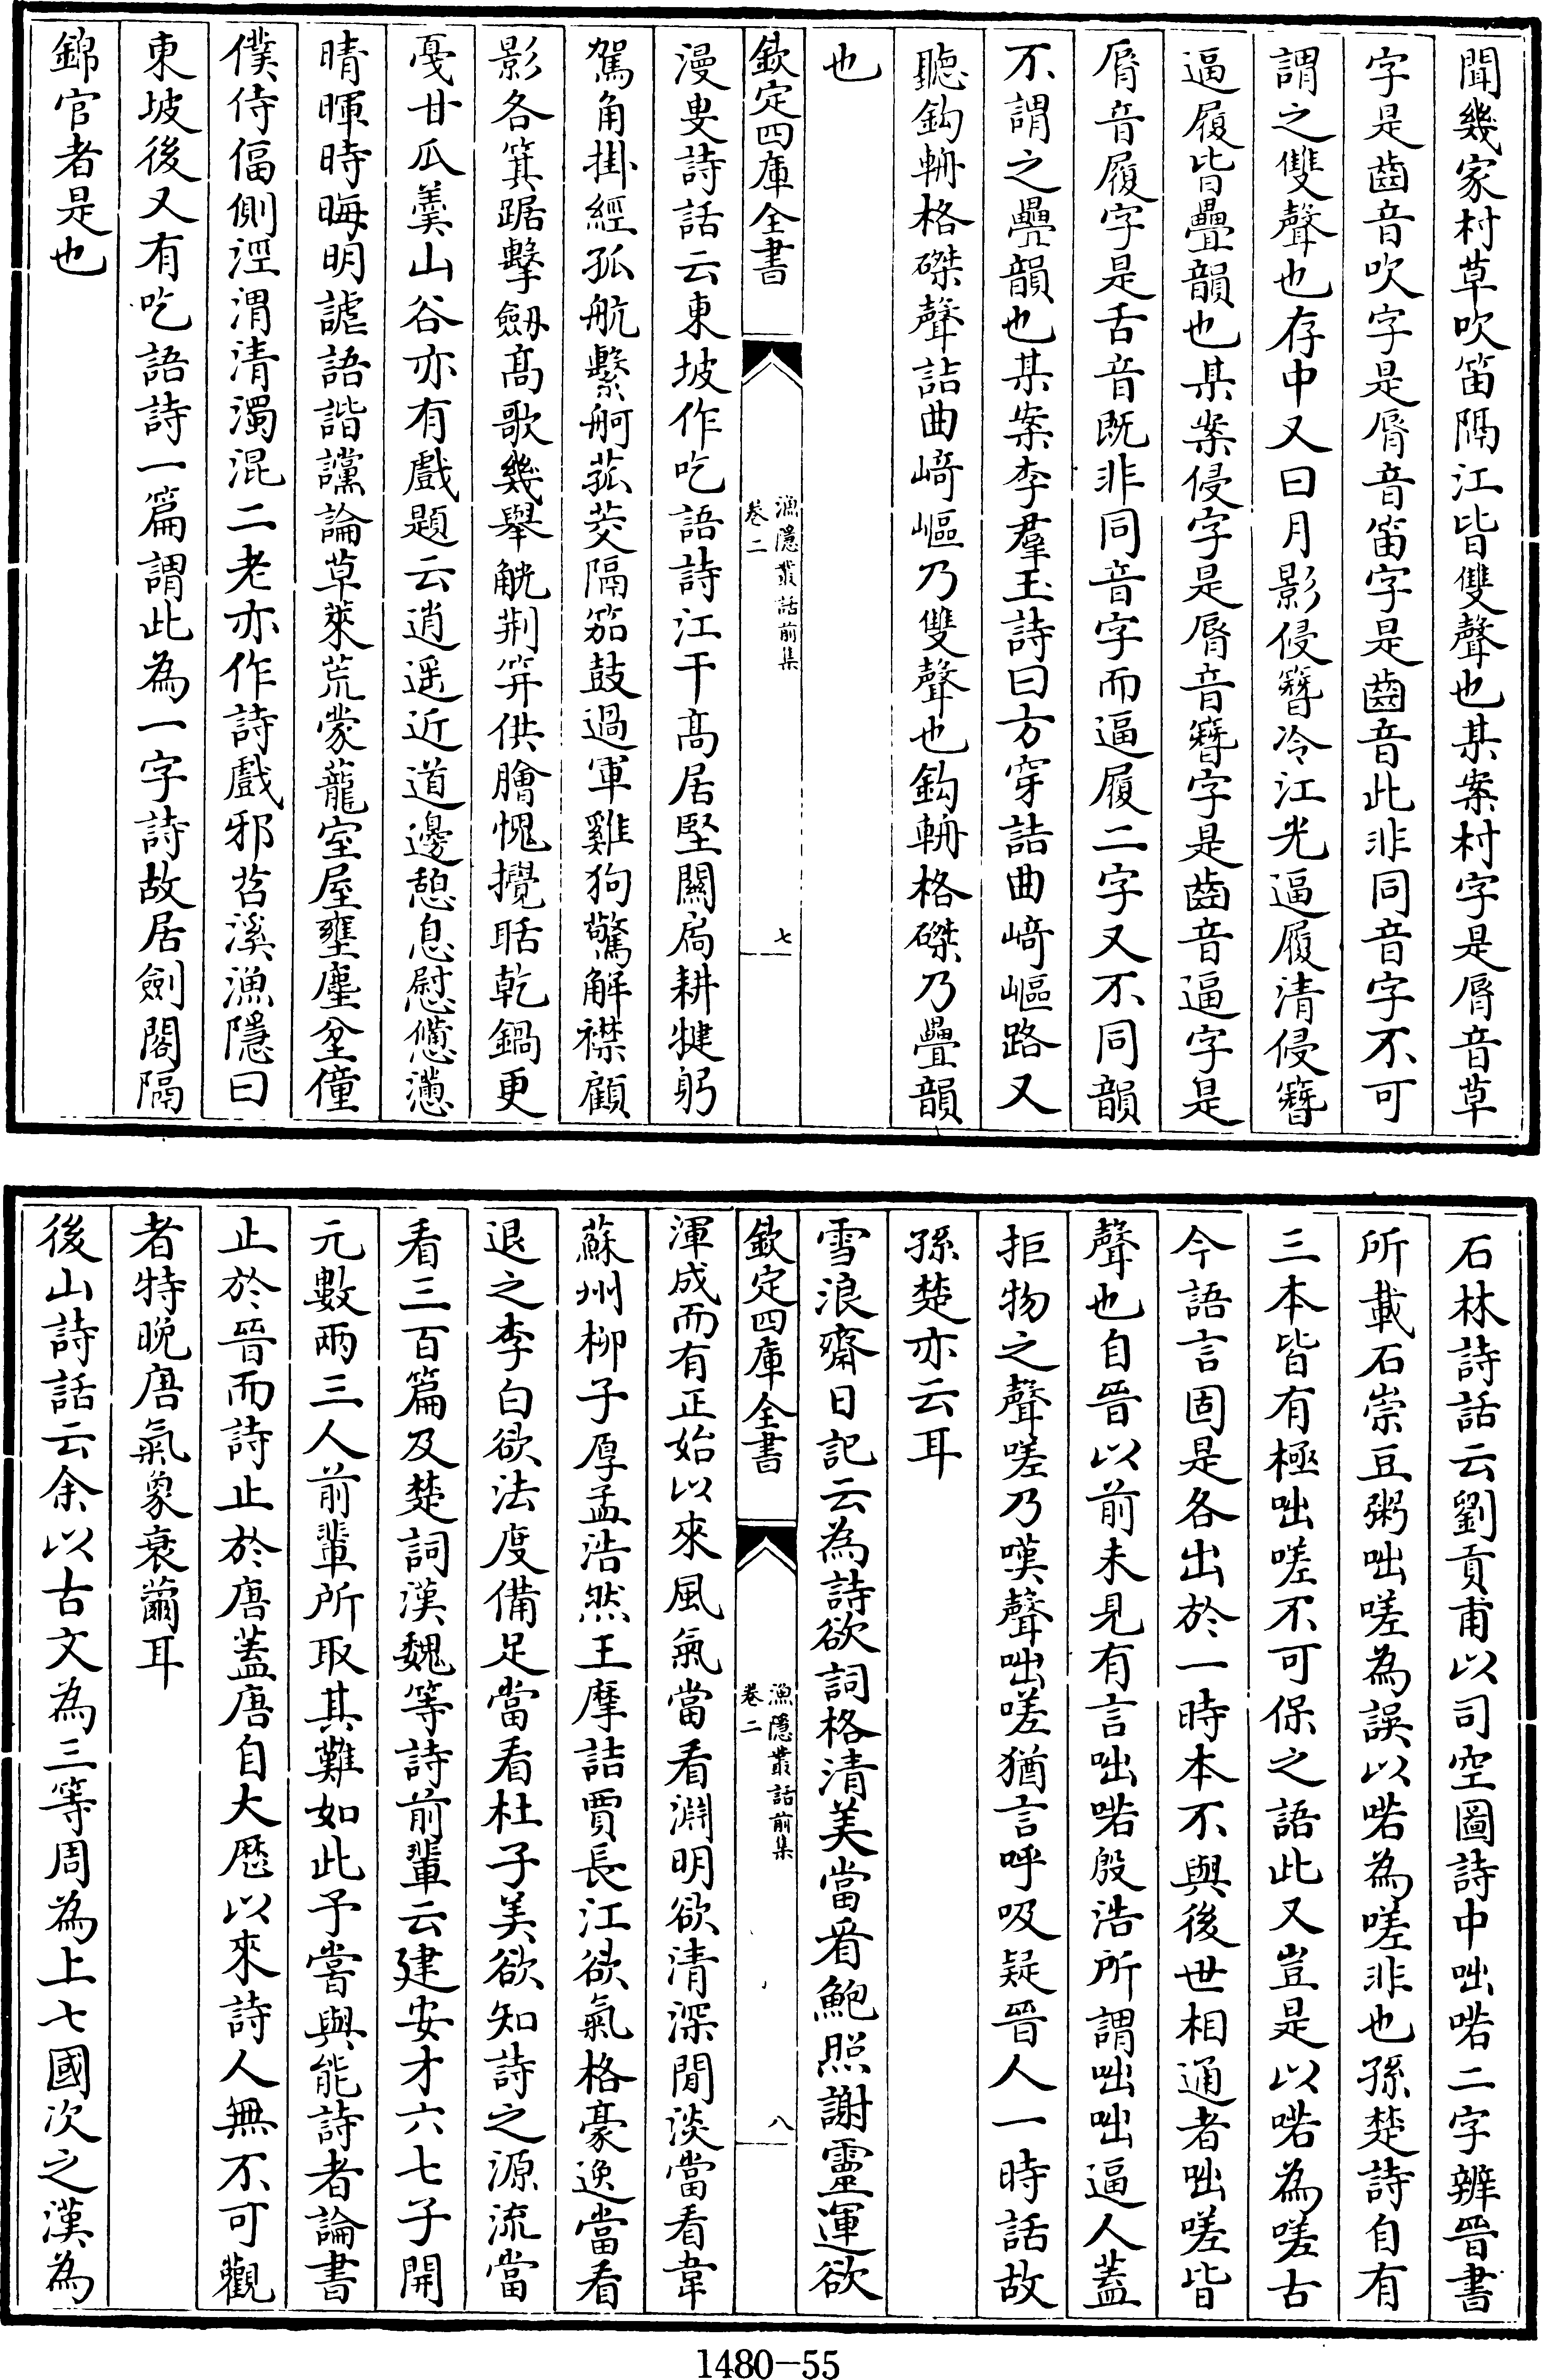 聞幾家村草吹笛隔江皆雙聲也某案村字是脣音草
字是齒音吹字是脣音笛字是齒音此非同音字不可
謂之雙聲也存中又曰月影侵簪冷江光逼履清侵簪
逼履皆疊韻也某案侵字是脣音簪字是齒音逼字是
脣音履字是舌音既非同音字而逼履二字又不同韻
不謂之疊韻也某案李羣玉詩曰方穿詰曲﨑嶇路又
聽鈎輈格磔聲詰曲﨑嶇乃雙聲也鈎輈格磔乃疊韻
也
欽定四庫全書
漁隱叢話前集
卷二
七
漫叟詩話云東坡作吃語詩江干髙居堅關扃耕犍躬
駕角掛經孤航繫舸菰茭隔笳鼓過軍雞狗驚解襟顧
影各箕踞擊劒髙歌幾舉觥荆笄供膾愧攪聒乾鍋更
戛甘瓜羹山谷亦有戲題云逍遥近道邊憩息慰憊懣
晴暉時晦明謔語諧讜論草萊荒蒙蘢室屋壅塵坌僮
僕侍偪側涇渭清濁混二老亦作詩戲邪苕溪漁隱曰
東坡後又有吃語詩一篇謂此為一字詩故居劍閣隔
錦官者是也
石林詩話云劉貢甫以司空圖詩中咄喏二字辨晉書
所載石崇豆粥咄嗟為誤以喏為嗟非也孫楚詩自有
三本皆有極咄嗟不可保之語此又豈是以喏為嗟古
今語言固是各出於一時本不與後世相通者咄嗟皆
聲也自晉以前未見有言咄喏殷浩所謂咄咄逼人蓋
拒物之聲嗟乃嘆聲咄嗟猶言呼吸疑晉人一時話故
孫楚亦云耳
雪浪齋日記云為詩欲詞格清美當看鮑照謝靈運欲
欽定四庫全書
漁隱叢話前集
卷二
八
渾成而有正始以來風氣當看淵明欲清深閒淡當看韋
蘇州柳子厚孟浩然王摩詰賈長江欲氣格豪逸當看
退之李白欲法度備足當看杜子美欲知詩之源流當
看三百篇及楚詞漢魏等詩前輩云建安才六七子開
元數兩三人前輩所取其難如此予嘗與能詩者論書
止於晉而詩止於唐蓋唐自大歴以來詩人無不可觀
者特晚唐氣象衰薾耳
後山詩話云余以古文為三等周為上七國次之漢為
1480-55